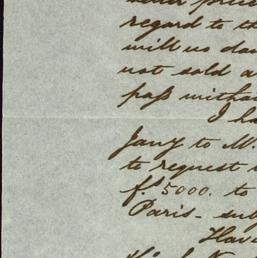 regard to th
will no da
not sold a
paß witho
I ha
Jany to M.
to request
f. 5000. to
Paris - sub
Have